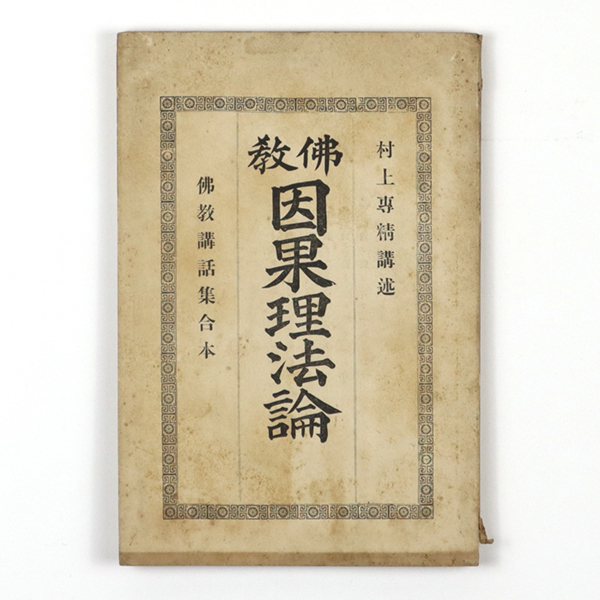 村上專精講述
佛教
因果理法論
佛教講話集合本